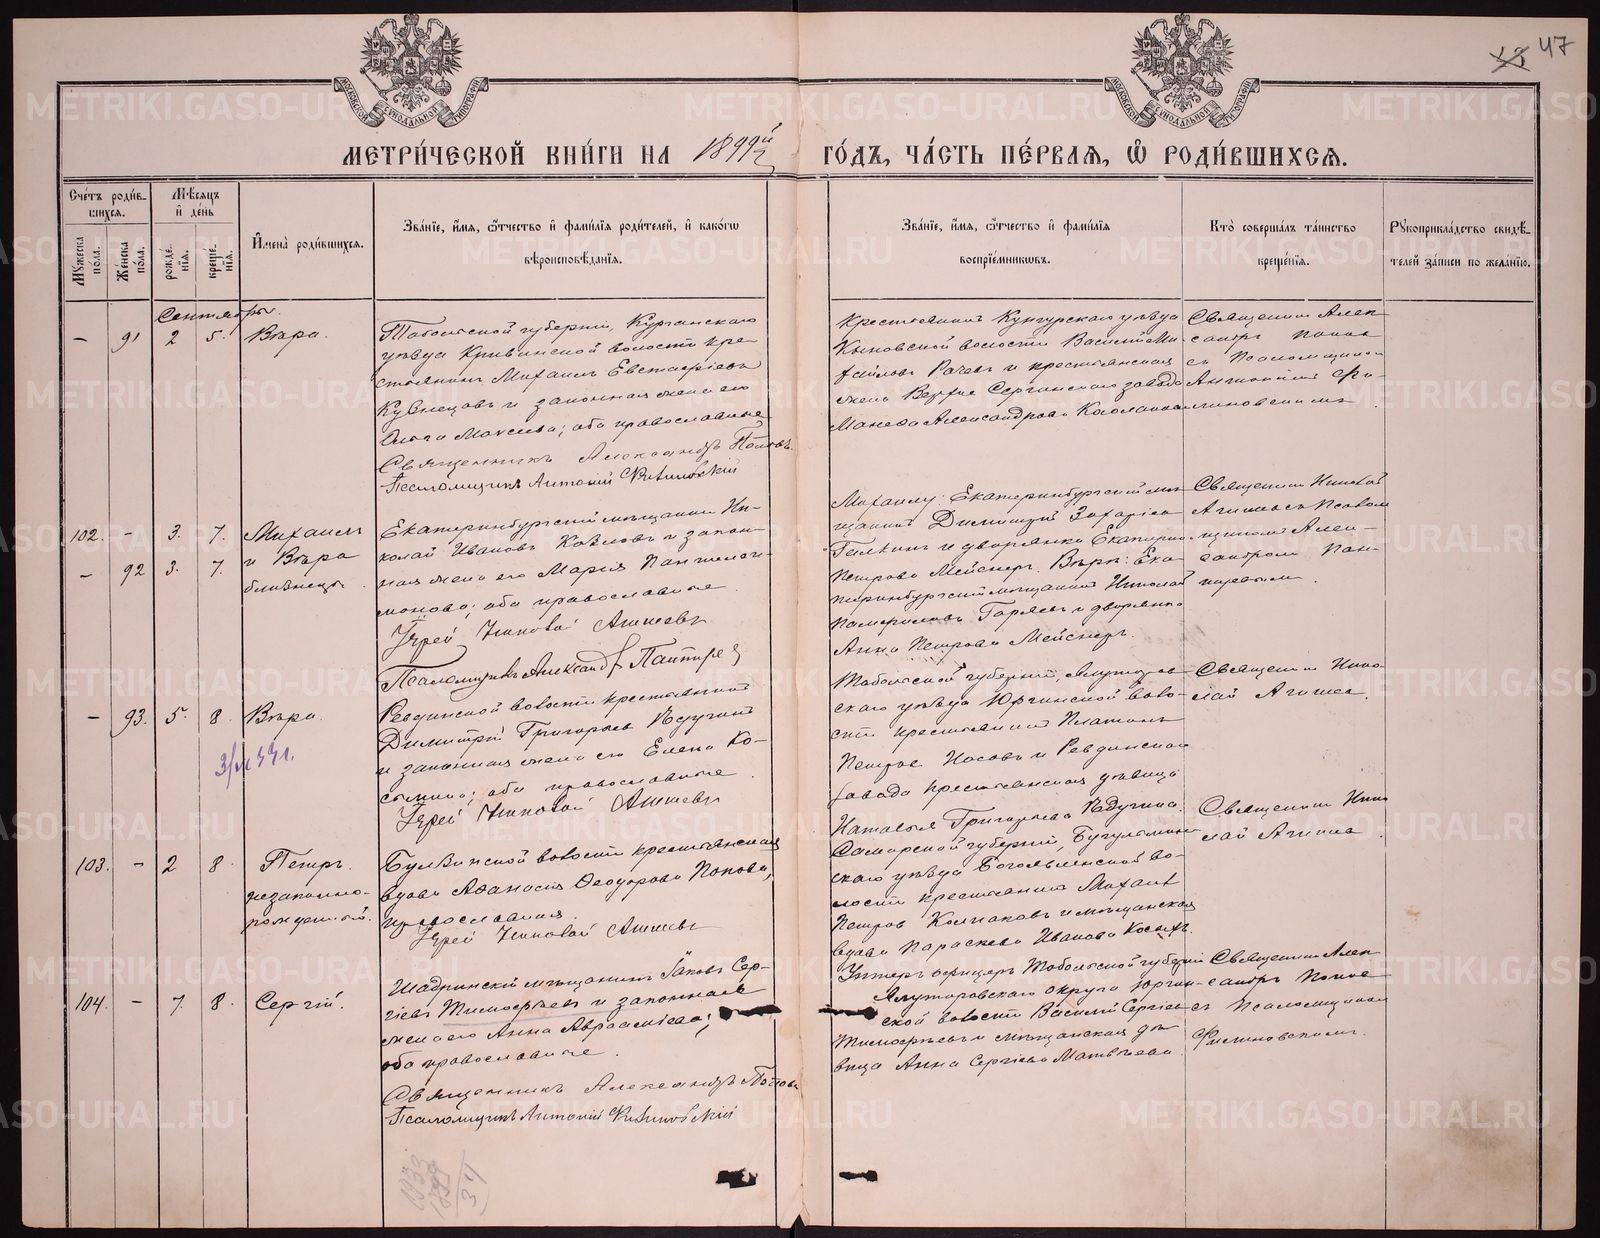 47
МОСКОВСКОЙ СѴНОДАЛЬНОЙ ТИПОГРАФІИ
МОСКОВСКОЙ СѴНОДАЛЬНОЙ ТИПОГРАФІИ
МЕТРИ́ЧЕСКОЙ КНИ́ГИ НА 1899й ГО́ДЪ, ЧА́СТЬ ПЕ́РВАЯ, Ѡ҆ РОДИ́ВШИХСЯ.
Сче́тъ роди́в-
шихся.
Мꙋжеска по́ла.
Же́нска по́ла.
Мѣ́сяцъ
и҆ де́нь
рожде́-
нїя.
креще́-
нїя.
И҆мена̀ роди́вшихся.
Зва́нїе, и҆́мя, ѻ҆́тчество и҆ фами́лїя роди́телей, и҆ како́гѡ
вѣроисповѣ́данїя.
Зва́нїе, и҆́мя, ѻ҆́тчество и҆ фами́лїя
воспрїе́мниковъ.
Кто̀ соверша́лъ та́инство
креще́нїя.
Рꙋкоприкла́дство свидѣ́-
телей за́писи по жела́нїю.
Сентябрь.
— 91 2 5. Вѣра.
Тобольской губерніи, Курганскаго
уѣзда Кривинской волости кре-
стьянинъ Михаилъ Евстафіевъ
Кузнецовъ и законная жена его
Ольга ; оба православные
Священникъ Александръ Поповъ.
Псаломщикъ Антоній
Крестьянинъ Кунгурскаго уѣзда
Кыновской волости Василій Ми-
хайловъ Рачевъ и крестьянская
жена Верхне Сергинскаго завода
Александрова
Священникъ Алек-
сандръ Попов
съ Псаломщикомъ
Антоніемъ Фи-
линовскимъ
102. - 3. 7. Михаилъ
— 92 3. 7. и Вѣра
близнецы
Екатеринбургскій мѣщанинъ Ни-
колай Ивановъ Козловъ и закон-
ная жена его Марія Пантелеи-
монова; оба православные.
Іерей Николай Агишевъ
Псаломщикъ Александръ
Михаилу: Екатеринбургскій мѣ-
щанинъ Димитрій Захаріевъ
и дворянка Екатерина
Петрова Мейснеръ. Вѣрѣ: Ека-
теринбургскій мѣщанинъ Николай
и дворянка
Анна Петрова Мейснеръ.
Священникъ Николай
Агишевъ съ Псалом-
щикомъ Алек-
сандромъ
— 93. 5. 8. Вѣра.
Ревдинской волости крестьянинъ
Димитрій Григорьевъ Кадучинъ
и законная жена его Елена Ко-
; оба православные.
Іерей Николай Агишевъ
Тобольской губерніи, Ялуторов-
скаго уѣзда Юргинской воло-
сти крестьянинъ Платонъ
Петровъ Носовъ и Ревдинскаго
завода крестьянская дѣвица
Наталья Григорьева Кадучина.
Священникъ Нико-
лай Агишевъ
103. - 2 8. Петръ.
незаконно-
рожденный.
волости крестьянская
вдова Аѳанасія Ѳеодорова Попова,
православная.
Іерей Николай Агишевъ
Самарской губерніи, Бугульмин-
скаго уѣзда Богоявленской во-
лости крестьянинъ Михаилъ
Петровъ Колпаковъ и мѣщанская
вдова Параскева Иванова
Священникъ Нико-
лай Агишевъ
104. - 7. 8. Сергій.
Шадринскій мѣщанинъ Іаковъ Сер-
гіевъ Тимофѣевъ и законная
жена его Анна Авраамiева;
оба православные.
Священникъ Александръ Поповъ
Псаломщикъ Антоній
Унтеръ офицеръ Тобольской губерніи
Ялуторовскаго округа Юргин-
ской волости Василій Сергіевъ
Тимофѣевъ и мѣщанская дѣ-
вица Анна Сергіева Матвѣева.
Священникъ Алек-
сандръ Попов
съ Псаломщикомъ
Филиновскимъ.
METRIKI.GASO-URAL.RU